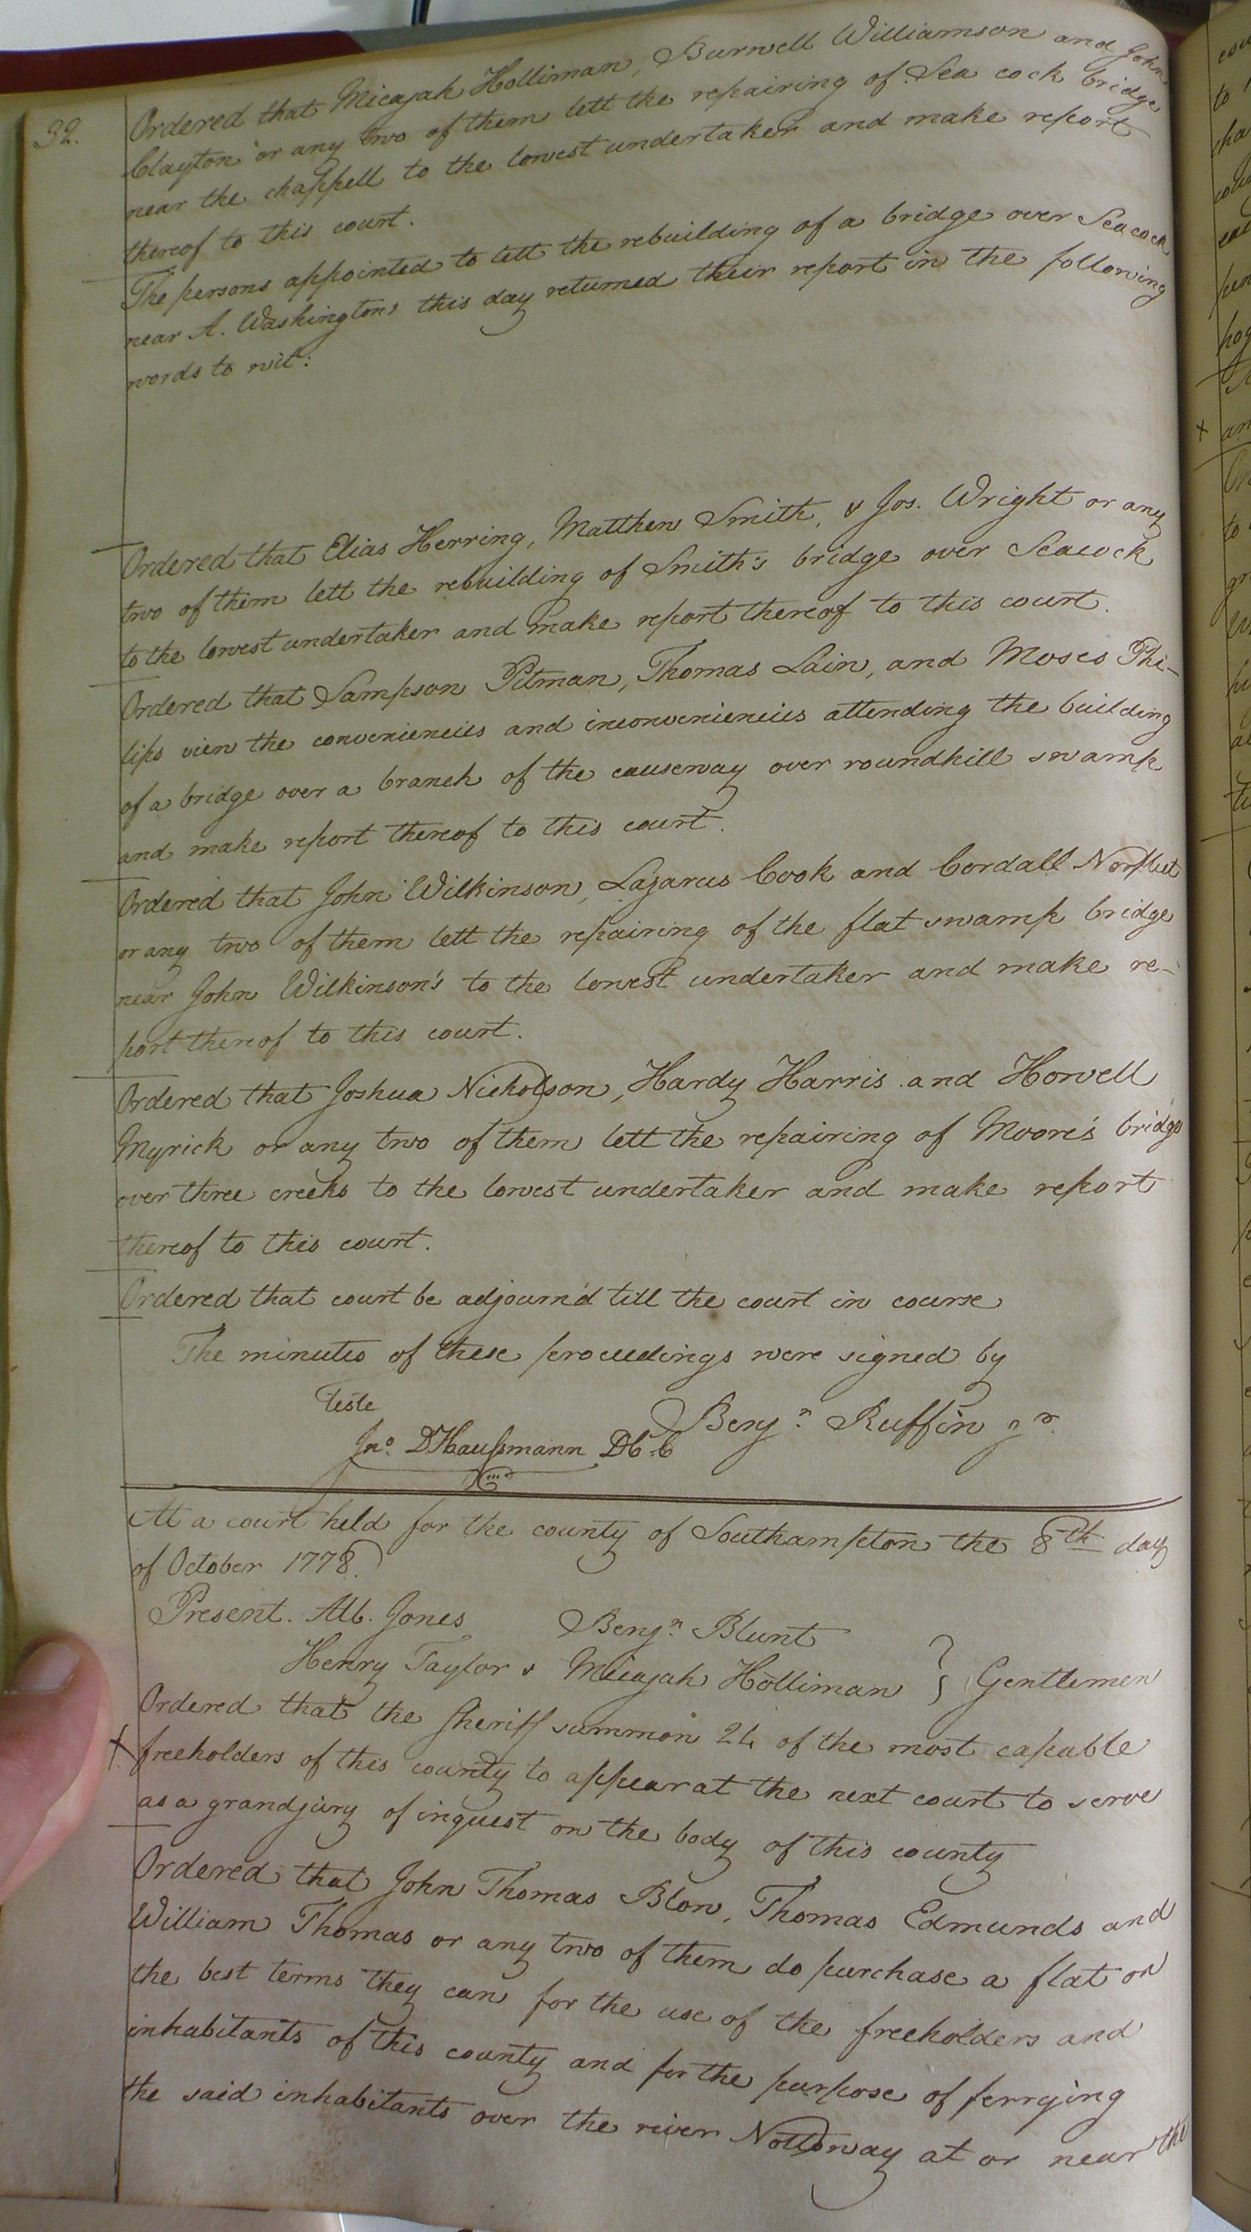 32.
Ordered that Micajah Holliman, Burwell Williamson and John
Clayton or any two of them lett the repairing of Sea cock bridge
near the chappell to the lowest undertaker and make report
thereof to this court.
The persons appointed to lett the rebuilding of a bridge over Seacock
near A. Washingtons this day returned their report in the following
words to wit:
Ordered that Elias Herring, Matthew Smith, & Jos. Wright or any
two of them lett the rebuilding of Smith's bridge over Seacock
to the lowest undertaker and make report thereof to this court.
Ordered that Sampson Pitman, Thomas Lain, and Moses Phi-
lips view the conveniencies and inconveniencies attending the building
of a bridge over a branch of the causeway over roundhill swamp
and make report thereof to this court.
Ordered that John Wilkinson, Lazarus Cook and Cordall Norfleet
or any two of them lett the repairing of the flat swamp bridge
near John Wilkinson's to the lowest undertaker and make re-
port thereof to this court.
Ordered that Joshua Nicholson, Hardy Harris and Howell
Myrick or any two of them lett the repairing of Moore's bridge
over three creeks to the lowest undertaker and make report
thereof to this court.
Ordered that court be adjourn'd till the court in course
The minutes of these proceedings were signed by
Teste
Benjn. Ruffin jr.
Jno. D'Haussmann D C C
At a court held for the county of Southampton the 8th day
of October 1778.
Present. Alb. Jones Benjn. Blunt
Henry Taylor & Micajah Holliman } Gentlemen
Ordered that the sheriff summon 24 of the most capable
+ freeholders of this county to appear at the next court to serve
as a grandjury of inquest on the body of this county
Ordered that John Thomas Blow, Thomas Edmunds and
William Thomas or any two of them do purchase a flat on
the best terms they can for the use of the freeholders and
inhabitants of this county and for the purpose of ferrying
the said inhabitants over the river Nottoway at or near the